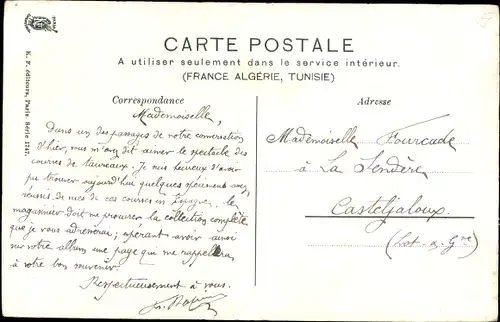 CARTE POSTALE
A utiliser seulement dans le service intérieur.
(FRANCE ALGÉRIE, TUNISIE)
Correspondance
Adresse
K. F. éditeurs, Paris. Série 1787.
Mademoiselle,
Dans un des passages de notre conversation
d'hier, vous m'avez dit aimer le spectacle des
courses de taureaux. Je suis heureux d'avoir
pu trouver aujourd'hui quelques spécimens assez
réussis de mes de cas courses en Espagne, le
magasinier doit me procurer la collection complète
que je vous adresserai; espérant avoir ainsi
sur votre album une page qui me rappellera
à votre bon souvenir.
Respectueusement à vous.
Mademoiselle Fourcade
à La Sendère
Casteljaloux
(Lot-&-Gne)